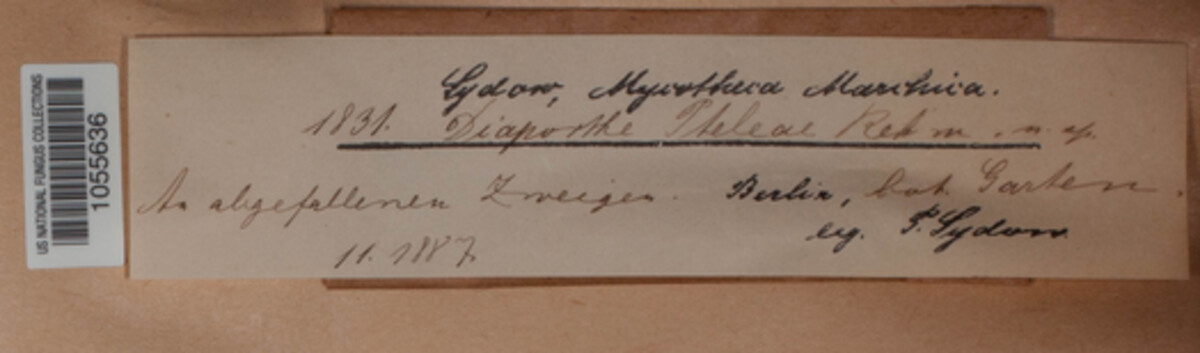 US NATIONAL FUNGUS COLLECTIONS
1055636
Sydow, Mycotheca Marchica.
1831. Diaporthe Pteleae Rehm. n. sp.
An abgefallenen Zweigen. Berlin, bot. Garten.
11. 1887. leg. P. Sydow.